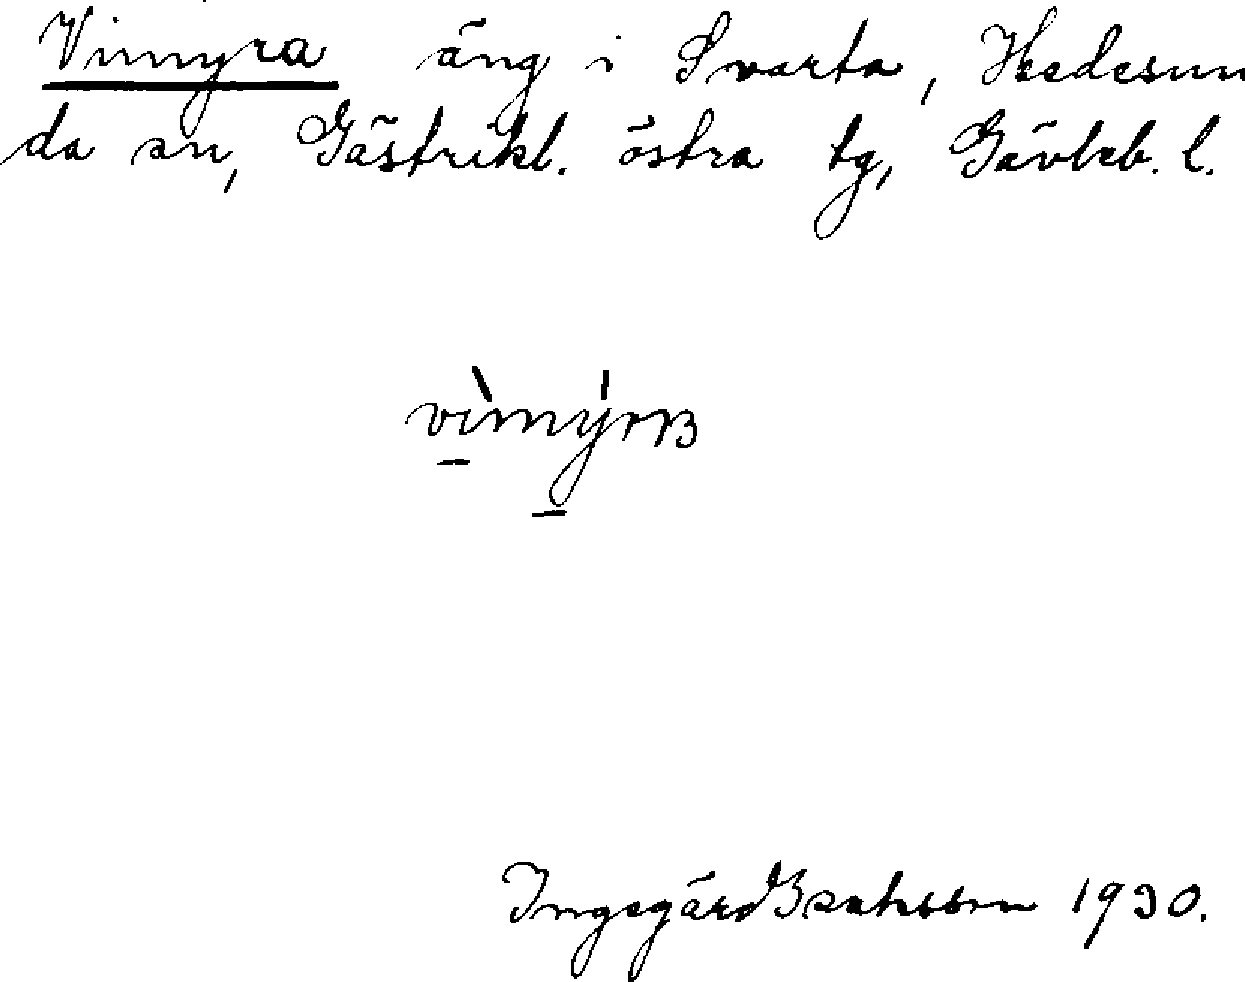 Vimyra äng i Svarta, Hedesun
da sn, Gästrikl. östra tg, Gävleb. l.
vìmýrɐ
Ingegärd 1930.